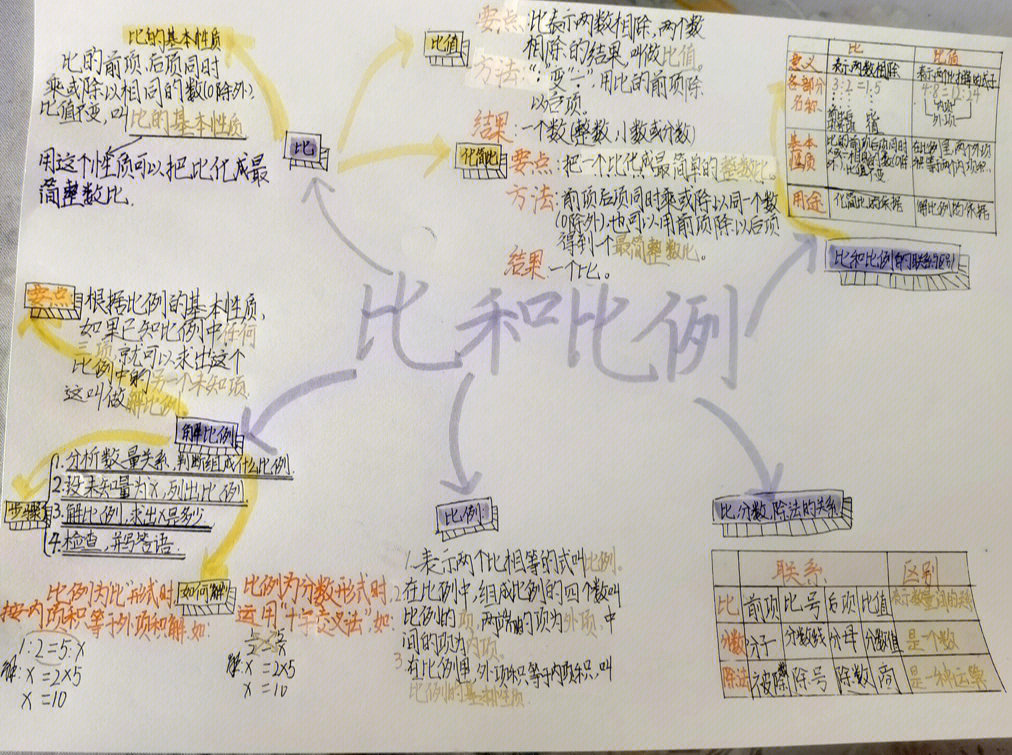 比的基本性质
比的前项后项同时
乘或除以相同的数(0除外).
比值不变,叫比的基本性质
用这个性质可以把比化成最
简整数比.
比
比值
要点:比表示两数相除,两个数
相除的结果,叫做比值。
方法:":"变"÷",用比的前项除
以后项。
结果:一个数(整数,小数或分数)
化简比
要点:把一个比化成最简单的整数比。
方法:前项后项同时乘或除以同一个数
(0除外).也可以用前项除以后项
得到一个最简整数比。
结果:一个比。
比 比值
意义 表示两数相除
各部分名称 3:2=1.5
内项
外项
基本性质
用途 化简比的依据 解比例的依据
比和比例的联系
比和比例
要点
根据比例的基本性质,
如果已知比例中任何
三项,就可以求出这个
比例中的另一个未知项.
这叫做解比例
解比例
步骤
1.分析数量关系,判断组成什么比例.
2.设未知量为x,列出比例.
3.解比例,求出x是多少
4.检查,并写答语.
如何解
比例为比形式时
按内项积等于外项积解.如:
1:2=5:x
解:x=2×5
x=10
比例为分数形式时,
运用"十字交叉法".如:
解:x=2×5
x=10
比例:
1.表示两个比相等的式叫比例。
2.在比例中,组成比例的四个数叫
比例的项,两端的项为外项,中
间的项为内项。
3.在比例里,外项积等于内项积,叫
比例的基本性质.
比,分数,除法的关系
联系 区别
比 前项 比号 后项 比值 表示数量间的关系
分数 分子 分数线 分母 分数值 是一个数
除法 被除数 除号 除数 商 是一种运算